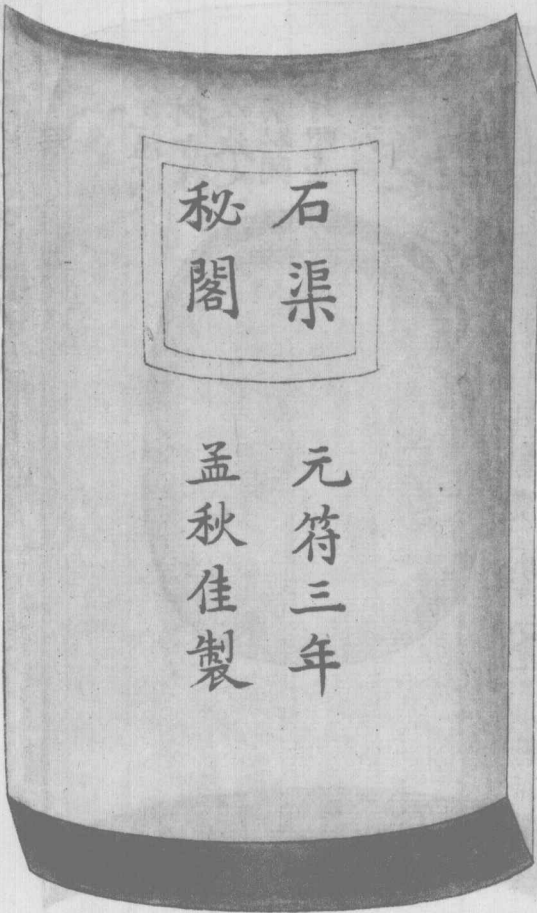 石渠
秘閣
元符三年
孟秋佳製